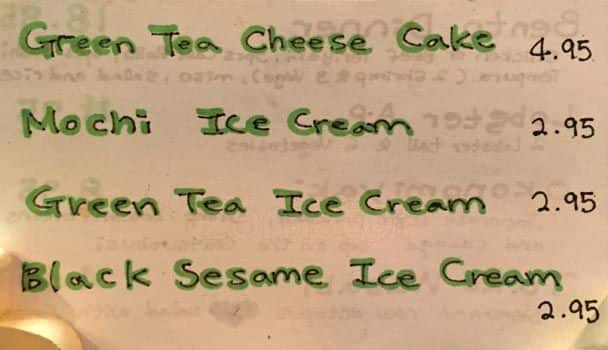 Green Tea Cheese Cake 4.95
Mochi Ice Cream 2.95
Green Tea Ice Cream 2.95
Black Sesame Ice Cream
2.95